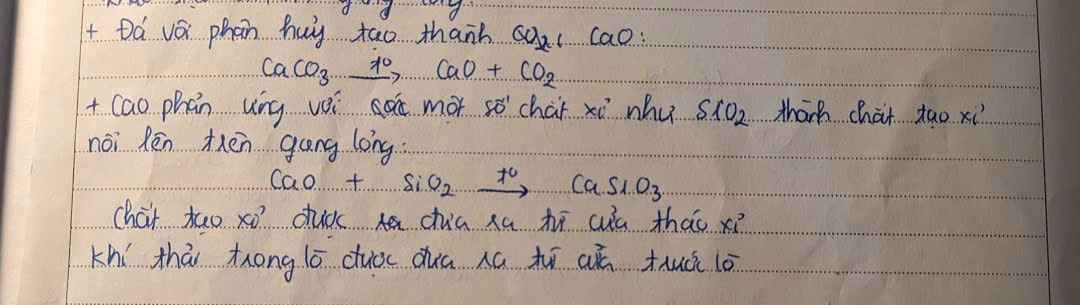 + Đá vôi phân huỷ tạo thành CO2, CaO:
CaCO3 t°→ CaO + CO2
+ CaO phản ứng với các một số chất xỉ như SiO2 thành chất tạo xỉ
nổi lên trên gang lỏng:
CaO + SiO2 t°→ CaSiO3
Chất tạo xỉ được ra đưa ra từ cửa tháo xỉ
khí thải trong lò được đưa ra từ cửa trước lò